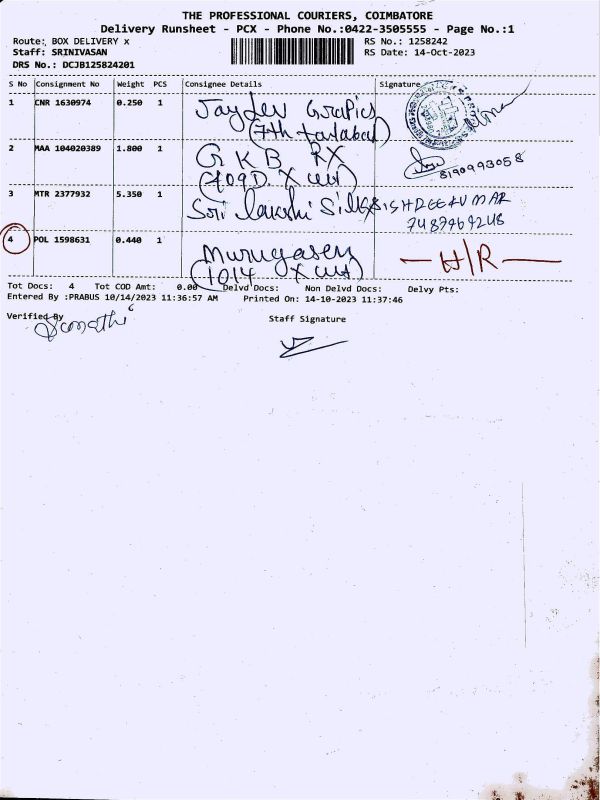 THE PROFESSIONAL COURIERS, COIMBATORE
Delivery Runsheet - PCX - Phone No.:0422-3505555 - Page No.:1
Route: BOX DELIVERY x RS No.: 1258242
Staff: SRINIVASAN RS Date: 14-Oct-2023
DRS No.: DCJB125824201
S No Consignment No Weight PCS Consignee Details Signature
1 CNR 1630974 0.250 1 Jaydev Grapics
(7th
2 MAA 104020389 1.800 1 G K B RX
(409D. X cut) 8190993058
3 MTR 2377932 5.350 1 Sri Lakshi Silks
7487969248
4 POL 1598631 0.440 1 Murugasen H/R
(1014 X cut)
Tot Docs: 4 Tot COD Amt: 0.00 Delvd Docs: Non Delvd Docs: Delvy Pts:
Entered By :PRABUS 10/14/2023 11:36:57 AM Printed On: 14-10-2023 11:37:46
Verified By Staff Signature